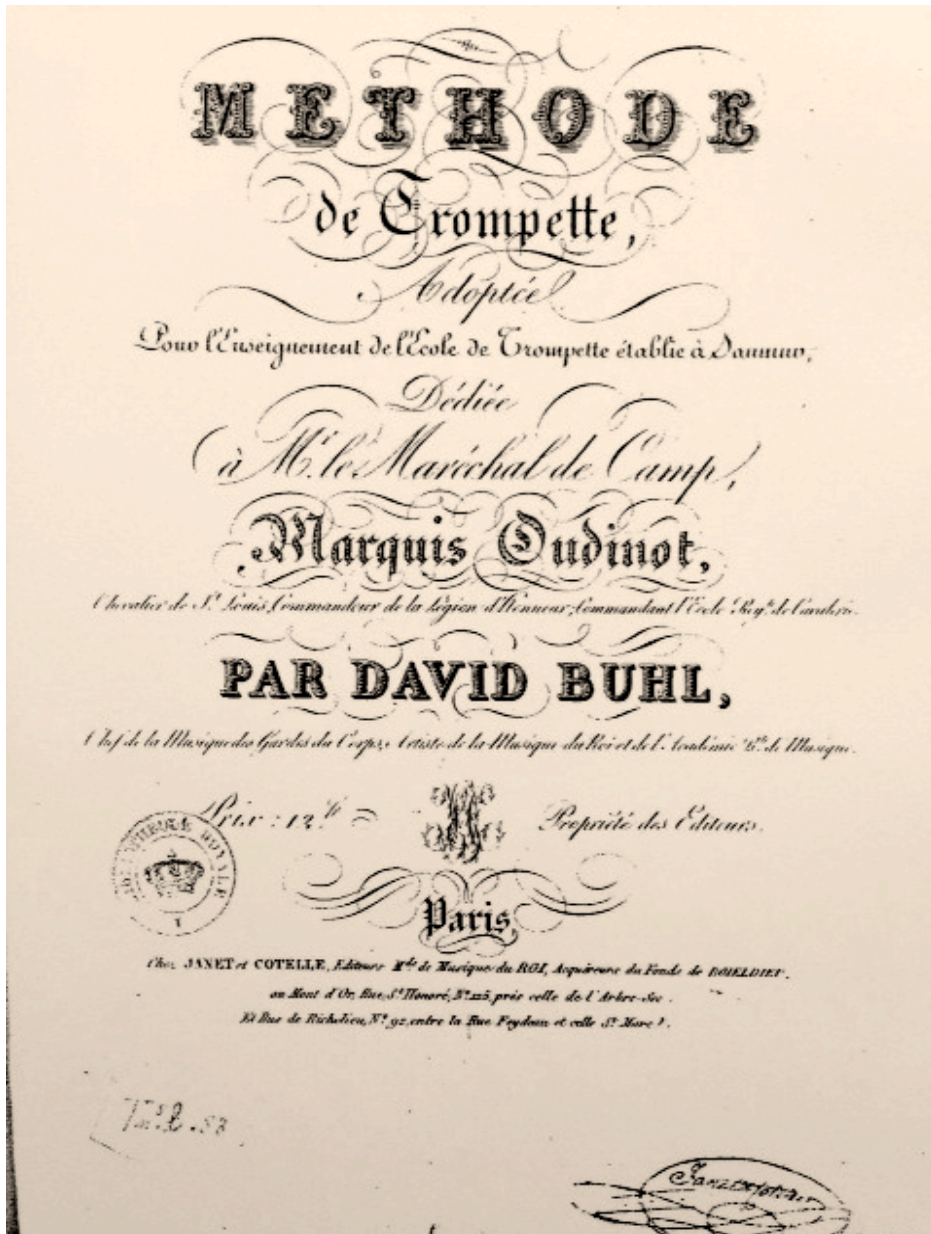 METHODE
de Trompette,
Adoptée
Pour l'Enseignement de l'École de Trompette établie à Saumur,
Dédiée
à Mr. le Maréchal de Camp,
Marquis Oudinot,
Chevalier de St. Louis, Commandeur de la Légion d'Honneur, Commandant l'Ecole Roy.le de Cavalerie.
PAR DAVID BUHL,
Chef de la Musique des Gardes du Corps, Artiste de la Musique du Roi et de l'Académie R.le de Musique.
Prix : 12 fr
Propriété des Editeurs.
BIBLIOTHEQUE ROYALE
Paris,
Chez JANET et COTELLE, Editeurs M.ds de Musique du ROI, Acquéreurs du Fonds de BOIELDIEU.
au Mont d'Or, Rue St. Honoré, N.º 125, près celle de l'Arbre-Sec.
Et Rue de Richelieu, N.º 92, entre la Rue Feydeau et celle St. Marc.